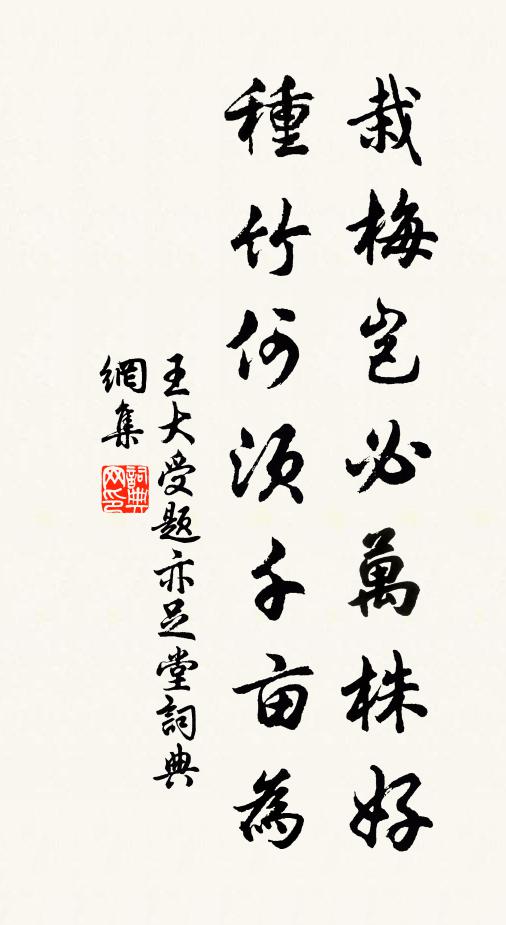 栽梅豈必萬株好
種竹何須千亩為
王大受题亦足堂詞典
網集
詞典網印